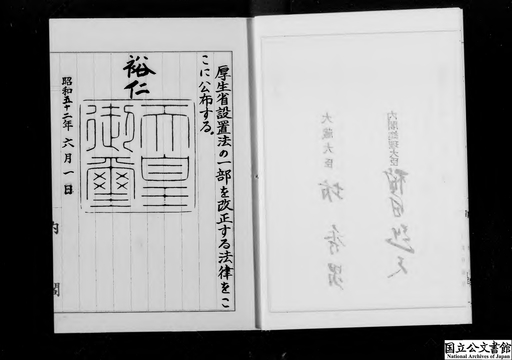 厚生省設置法の一部を改正する法律をこ
こに公布する。
裕仁
天皇
御璽
昭和五十二年六月一日
内閣
内閣総理大臣
福田赳夫
大蔵大臣
坊秀男
国立公文書館
National Archives of Japan